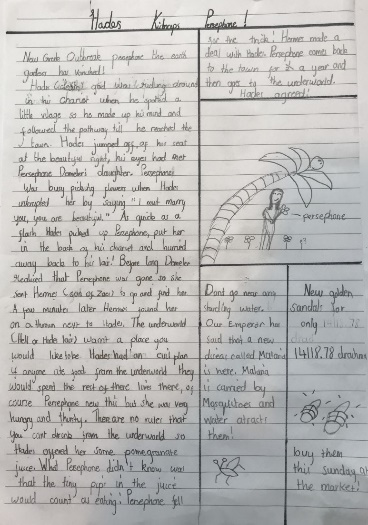 Hades Kidnaps Persephone!
New Greek Outbreak persephone the earth
goddess has Vanished!
Hade god was riding around
in his Chariot when he spotted a
little village so he made up his mind and
followed the pathway till he reached the
town. Hades jumped off of his seat
at the beautiful sight, his eyes had met
Persephone Demeters daughter. Persephone
Was busy picking flowers when Hades
intrupted her by saying "I must marry
you, you are beautiful." As quick as a
flash Hades picked up Persephone, put her
in the back of his chariot and hurried
away back to his lair! Before long Demeter
Realized that Persephone was gone so she
sent Hermes (son of Zeus) to go and find her
A few minutes later Hermes found her
on a thrown next to Hades. The underworld
(Hell or Hade lair) wasnt a place you
would like to be. Hades had an evil plan
if anyone ate food from the underworld they
would spend the rest of there lives there, of
course Persephone new this but she was very
hungry and thirsty. There are no rules that
you cant drink from the underworld so
Hades offered her some pomegranate
juice. What Persephone didn't know was
that the tiny pip in the juice
would count as eating! Persephone fell
for the trick! Hermes made a
deal with Hades. Persephone comes back
to the town for a year and
then goes to the underworld.
Hades agreed!
persephone
Dont go near any
standing water.
Our Emperor has
said that a new
diseas called Malaria
is here. Malaria
is carried by
Mosquitoes and
water atracts
them!
New golden
sandals for
only
14118.78 drachma
buy them
this sunday at
the market!